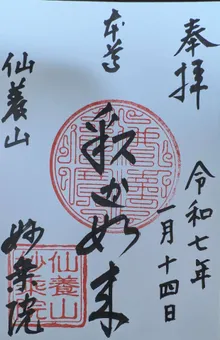 奉拝
令和七年
一月十四日
本尊
薬師如来
仙養山
妙楽院
仙養山